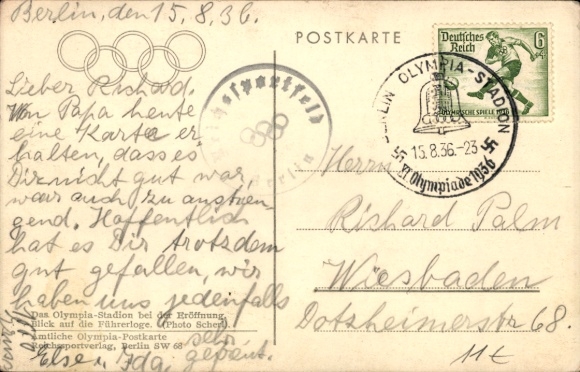 Berlin, den 15.8.36.
Lieber Richard.
Von Papa heute
eine Karte er-
halten, dass es
Dir nicht gut war,
war auch zu anstren-
gend. Hoffentlich
hat es Dir trotzdem
gut gefallen, wir
haben uns jedenfalls
sehr
gefreut.
Else u. Ida.
Das Olympia-Stadion bei der Eröffnung.
Blick auf die Führerloge. (Photo Scherl)
Amtliche Olympia-Postkarte
Reichssportverlag, Berlin SW 68
Reichssportfeld
Berlin
POSTKARTE
Deutsches
Reich
6
OLYMPISCHE SPIELE 1936
BERLIN OLYMPIA-STADION
15.8.36.-23
XI Olympiade 1936
Herrn
Richard Palm
Wiesbaden
Dotzheimerstr 68.
11€